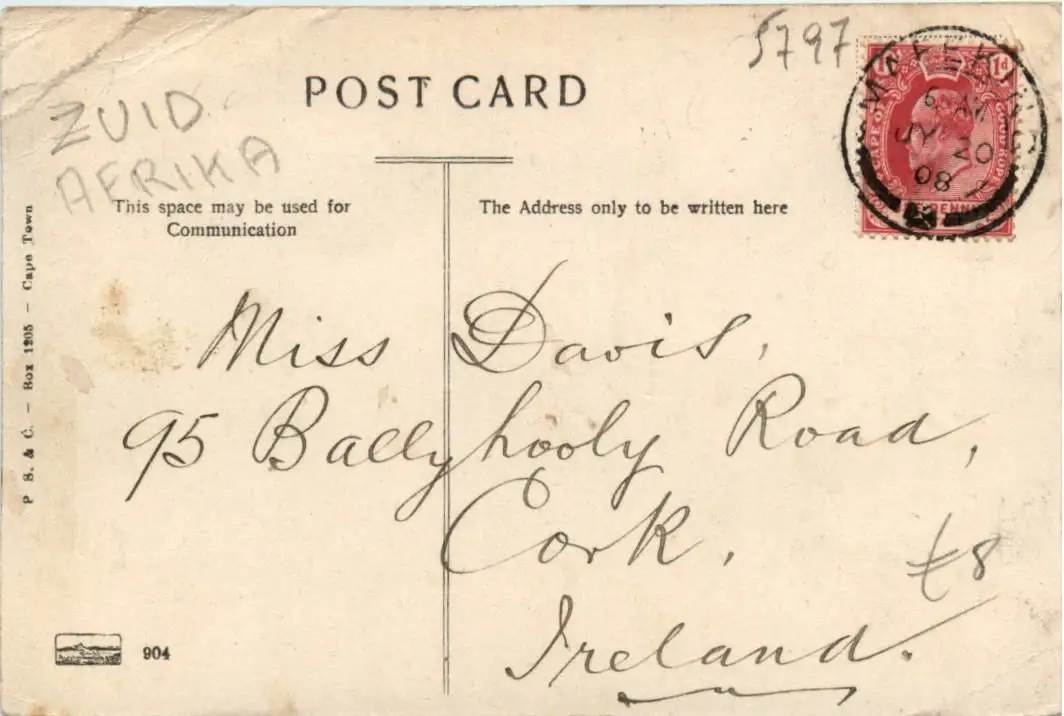 5797
POST CARD
ZUID
AFRIKA
MAFEKING
6 AM
JY 20
08
1d
CAPE OF GOOD HOPE
PENNY
This space may be used for
Communication
The Address only to be written here
Miss Davis,
95 Ballyhooly Road,
Cork,
Ireland.
£8
P. S. & C. – Box 1205 – Cape Town
904